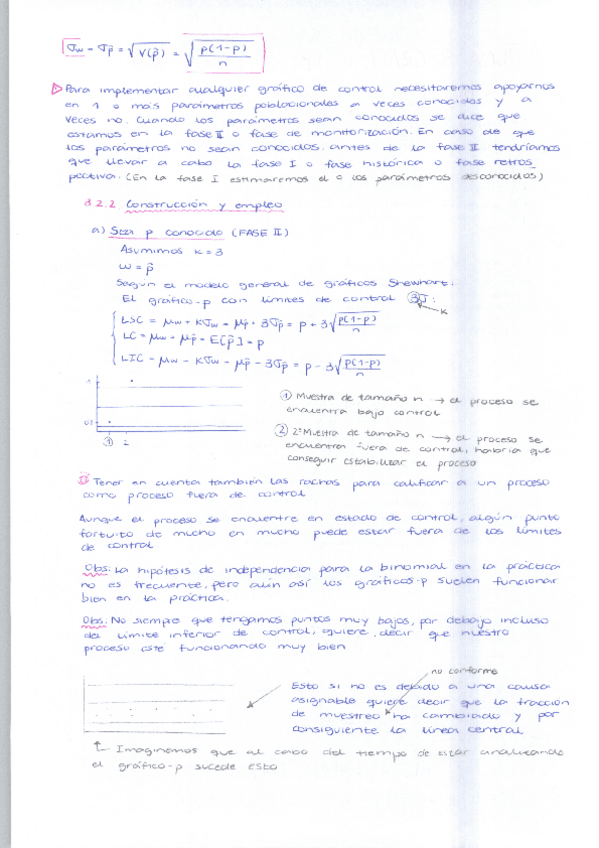 σw = σp̂ = √V(p̂) = √(p(1-p)/n)
Para implementar cualquier gráfico de control necesitaremos apoyarnos
en 1 o más parámetros poblacionales a veces conocidos y a
veces no. Cuando los parámetros sean conocidos se dice que
estamos en la fase II o fase de monitorización. En caso de que
los parámetros no sean conocidos, antes de la fase II tendríamos
que llevar a cabo la fase I o fase histórica o fase retros
pectiva. (En la fase I estimaremos el o los parámetros desconocidos)
2.2 Construcción y empleo
a) Sea p conocido (FASE II)
Asumimos K=3
W = p̂
Según el modelo general de gráficos Shewhart:
El gráfico-p con límites de control 3σ:
K
LSC = μw + Kσw = μp̂ + 3σp̂ = p + 3√(p(1-p)/n)
LC = μw = μp̂ = E[p̂] = p
LIC = μw - Kσw = μp̂ - 3σp̂ = p - 3√(p(1-p)/n)
① Muestra de tamaño n → el proceso se
encuentra bajo control
② 2ª Muestra de tamaño n → el proceso se
encuentra fuera de control, habría que
conseguir estabilizar el proceso
① 2
Tener en cuenta también las rachas para calificar a un proceso
como proceso fuera de control
Aunque el proceso se encuentre en estado de control, algún punto
fortuito de mucho en mucho puede estar fuera de los límites
de control
Obs: La hipótesis de independencia para la binomial en la práctica
no es frecuente, pero aún así los gráficos-p suelen funcionar
bien en la práctica.
Obs: No siempre que tengamos puntos muy bajos, por debajo incluso
del límite inferior de control, quiere decir que nuestro
proceso esté funcionando muy bien
no conforme
Esto si no es debido a una causa
asignable quiere decir que la fracción
de muestreo ha cambiado y por
consiguiente la línea central
Imaginemos que al cabo del tiempo de estar analizando
el gráfico-p sucede esto